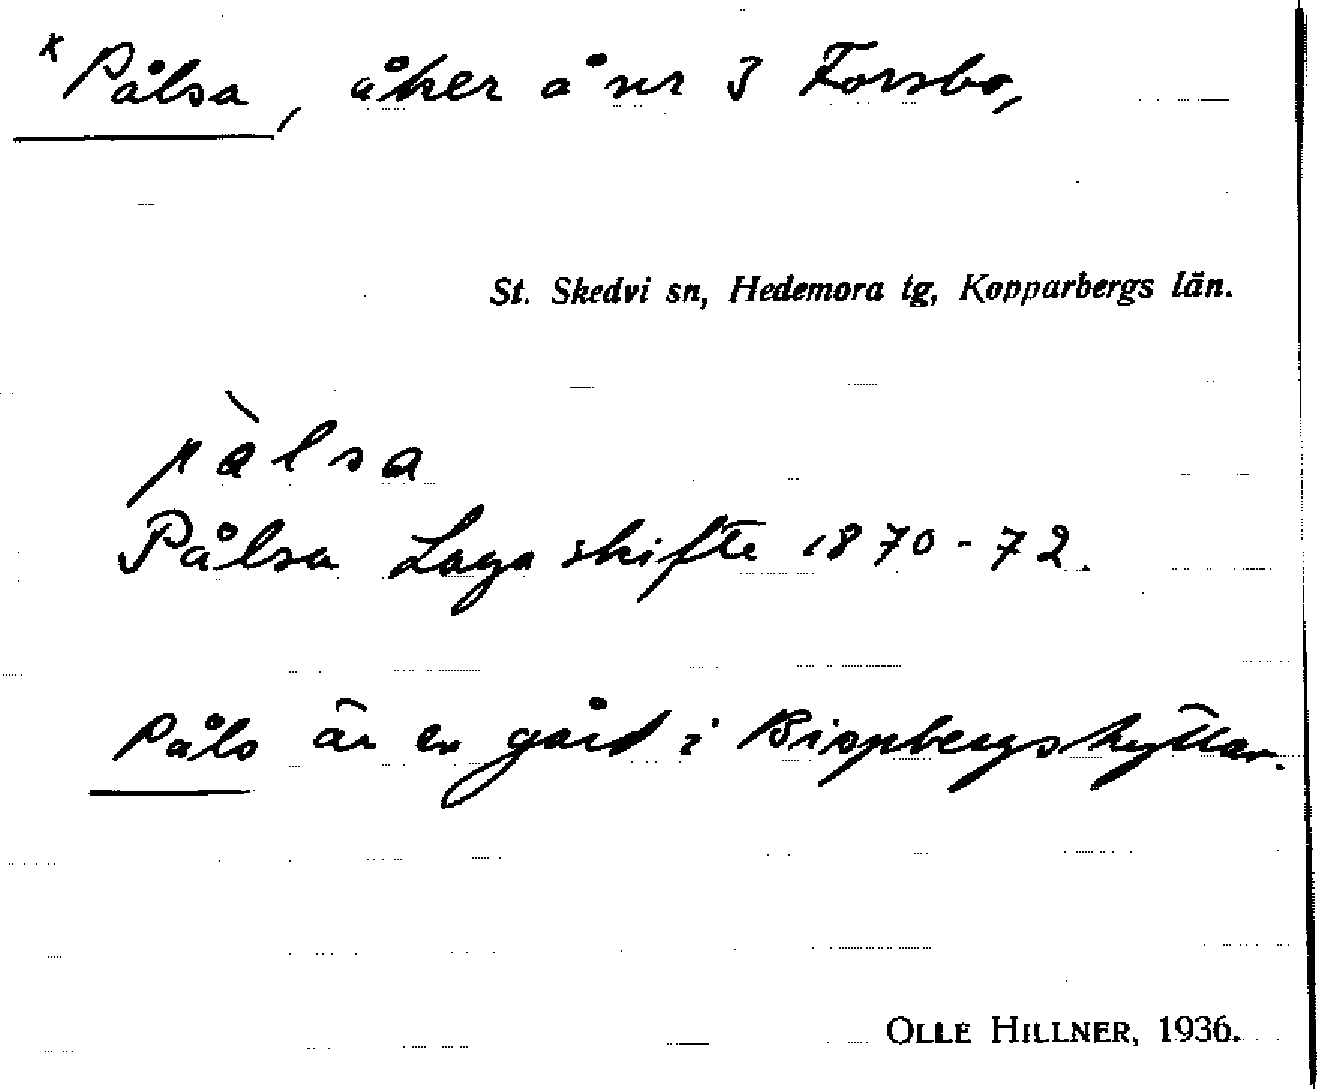 x Pålsa, åker å nr 3 Forsbo,
St. Skedvi sn, Hedemora tg, Kopparbergs län.
pàlsa
Pålsa Laga skifte 1870-72.
Påls är en gård i Bispbergshyttan.
OLLE HILLNER, 1936.